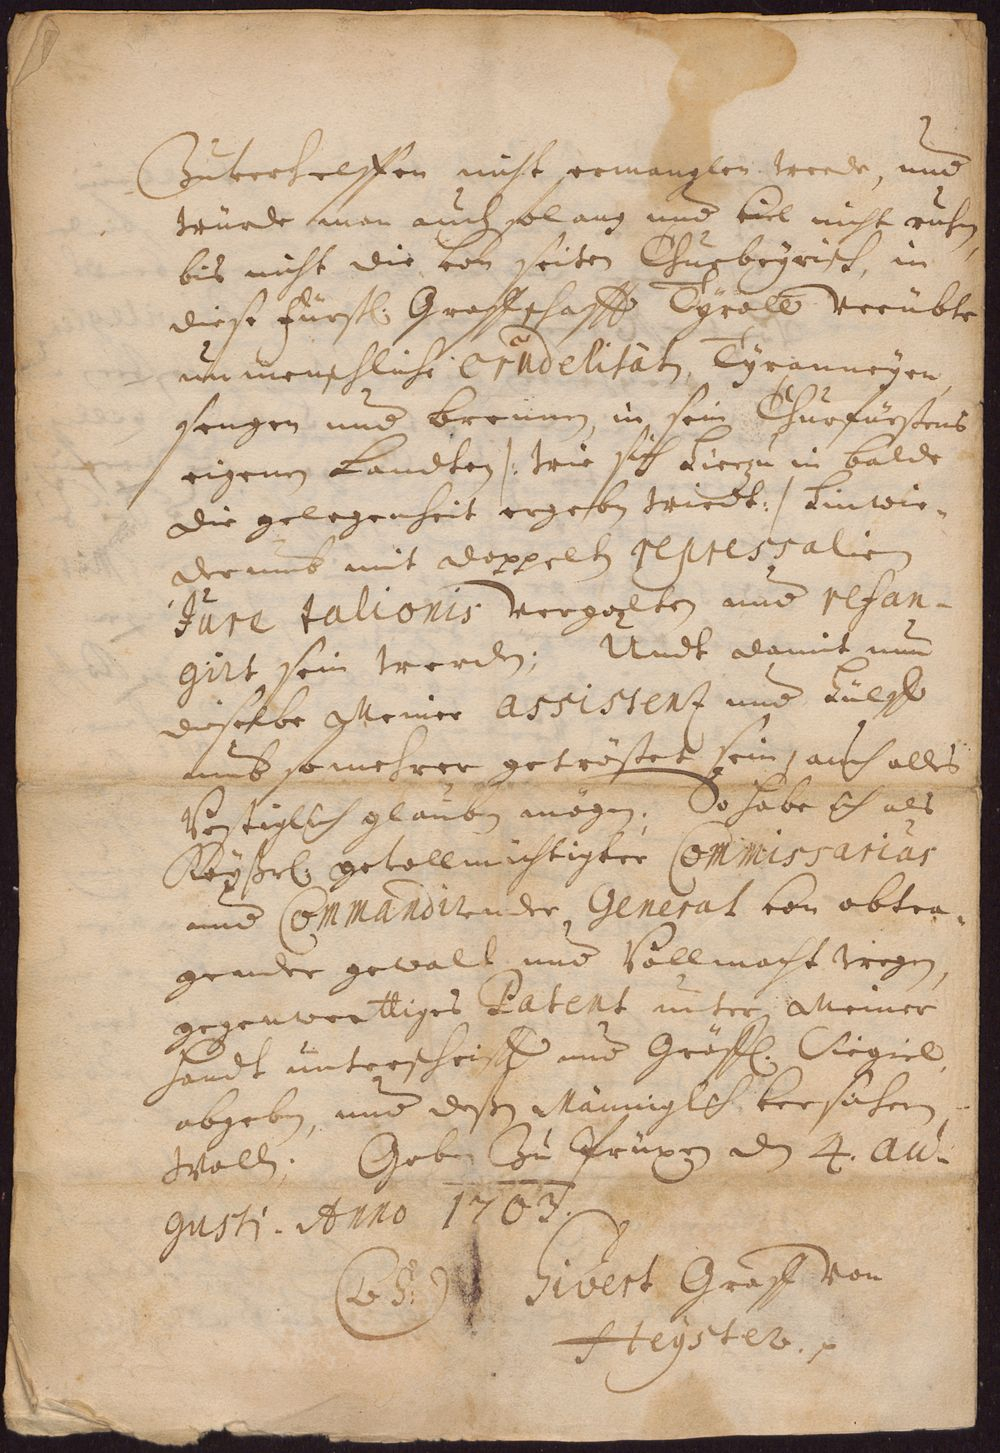 Zuverhelffen nicht ermanglen werde, und
würde man auch solang und viel nicht ruhen,
bis nicht die von seiten Churbeyrisch, in
diese Fürstl: Graffschafft Tÿroll verübte
unmenschliche Crudelitäten, Tÿranneÿen,
sengen und brennen, in sein Churfürstens
eigenen Landten /: wie sich hierzu in balde
die gelegenheit ergeben wiedt :/ hinwie-
derumb mit doppelten repressalien
Jure talionis vergolten und resan-
girt sein werden; Undt damit nun
dieselbe Meiner assistenz und hülff
umb so mehrer getröstet sein, auch alles
Vestiglich glauben mögen, So habe ich als
Keÿßrl: gevollmächtigter Commissarius
und Commandirender General von obtra-
gender gewalt und Vollmacht wegen,
gegenwerttiges Patent unter Meiner
handt unterschrifft und Gräffl. Siegiel,
abgeben, und deßen Männiglich versichern
wollen; Geben Zu Prüxen den 4. Au-
gusti. Anno 1703.
(L. S:) Sivert Graff von
Heÿster.